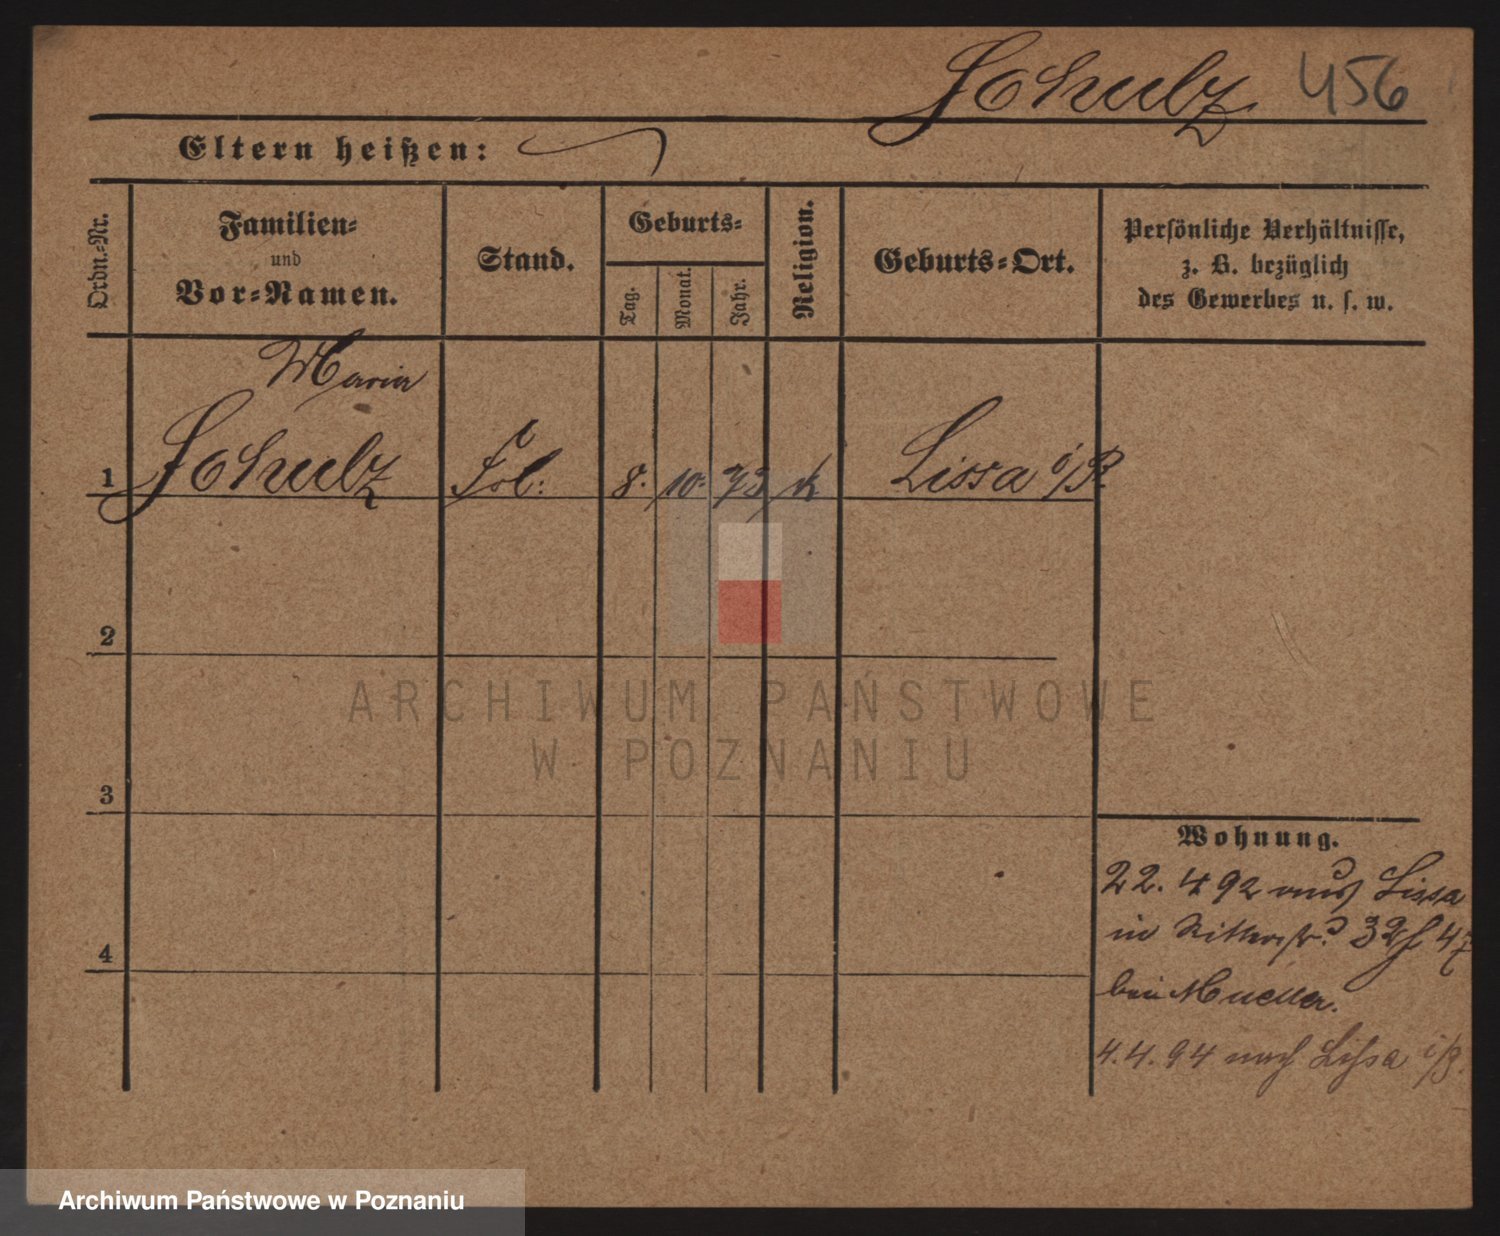 Schulz 456
Eltern heißen:
Ordn.-Nr.
Familien-
und
Vor-Namen.
Stand.
Geburts-
Tag.
Monat.
Jahr.
Religion.
Geburts-Ort.
Persönliche Verhältnisse,
z. B. bezüglich
des Gewerbes u. s. w.
Maria
1 Schulz Frl. 8. 10. 73 k Lissa i/P.
2
ARCHIWUM PAŃSTWOWE
W POZNANIU
3
Wohnung.
22. 4 92 aus Lissa
in Ritterstr.
4
bei Mueller.
4. 4. 94 nach Lissa i/P.
Archiwum Państwowe w Poznaniu